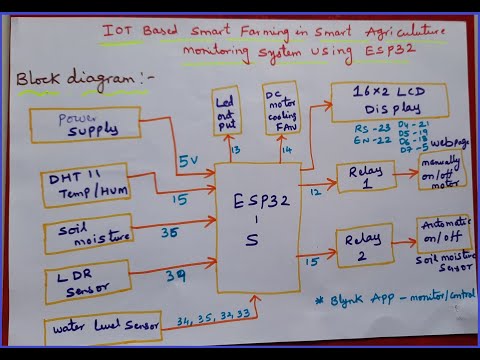 IOT Based Smart Farming in Smart Agriculuture
monitoring System using ESP32
Block diagram:-
Power
Supply
5V
DHT 11
Temp/Hum
15
Soil
moisture
LDR
Sensor
39
water level Sensor
34, 35, 32, 33
Led
out
put
13
DC
motor
cooling
FAN
14
ESP32
-
S
16x2 LCD
Display
RS-23
EN-22
D4-21
D5-19
D6-18
D7-5
12
Relay
1
webpage
manually
on/off
motor
15
Relay
2
Automatic
on/off
Soil moisture
Sensor
* Blynk App - monitor/control